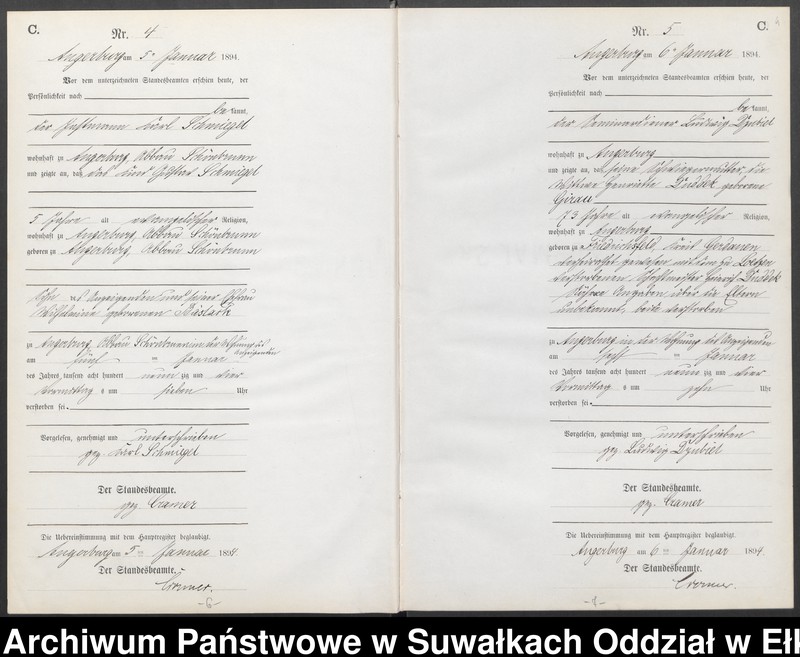 C.
Nr. 4
Angerburg am 5ten Januar 1894.
Vor dem unterzeichneten Standesbeamten erschien heute, der
Persönlichkeit nach
be kannt,
der Karl Schmiegel
wohnhaft zu Angerburg, Abbau Schönbrunn
und zeigte an, daß Gustav Schmiegel
5 Jahre alt evangelischer Religion,
wohnhaft zu Angerburg, Abbau Schönbrunn
geboren zu Angerburg, Abbau Schönbrunn
Sohn des Anzeigenden und seiner Ehefrau
Wilhelmine geborenen
zu Angerburg, Abbau Schönbrunn in der Wohnung des
Anzeigenden
am fünf ten Januar
des Jahres tausend acht hundert neun zig und vier
Vormittag s um sieben Uhr
verstorben sei.
Vorgelesen, genehmigt und unterschrieben
gez. Karl Schmiegel
Der Standesbeamte.
gez. Cramer
Die Uebereinstimmung mit dem Hauptregister beglaubigt.
Angerburg am 5ten Januar 1894.
Der Standesbeamte.
Cramer.
-6-
C.
Nr. 5
Angerburg am 6ten Januar 1894.
Vor dem unterzeichneten Standesbeamten erschien heute, der
Persönlichkeit nach
be kannt,
der Seminardiener Ludwig Dzubiel
wohnhaft zu Angerburg
und zeigte an, daß seine Schwiegermutter, die
Wittwe Henriette Duddek geborene
Girau
73 Jahre alt evangelischer Religion,
wohnhaft zu Angerburg
geboren zu Friedrichsfeld, Kreis Gerdauen
verheirathet gewesen mit dem zu Loetzen
verstorbenen Duddek
Nähere Angaben über die Eltern
unbekannt, beide verstorben
zu Angerburg in der Wohnung des Anzeigenden
am sechs ten Januar
des Jahres tausend acht hundert neun zig und vier
Vormittag s um zehn Uhr
verstorben sei.
Vorgelesen, genehmigt und unterschrieben
gez. Ludwig Dzubiel
Der Standesbeamte.
gez. Cramer
Die Uebereinstimmung mit dem Hauptregister beglaubigt.
Angerburg am 6ten Januar 1894
Der Standesbeamte.
Cramer.
Archiwum Państwowe w Suwałkach Oddział w Ełk